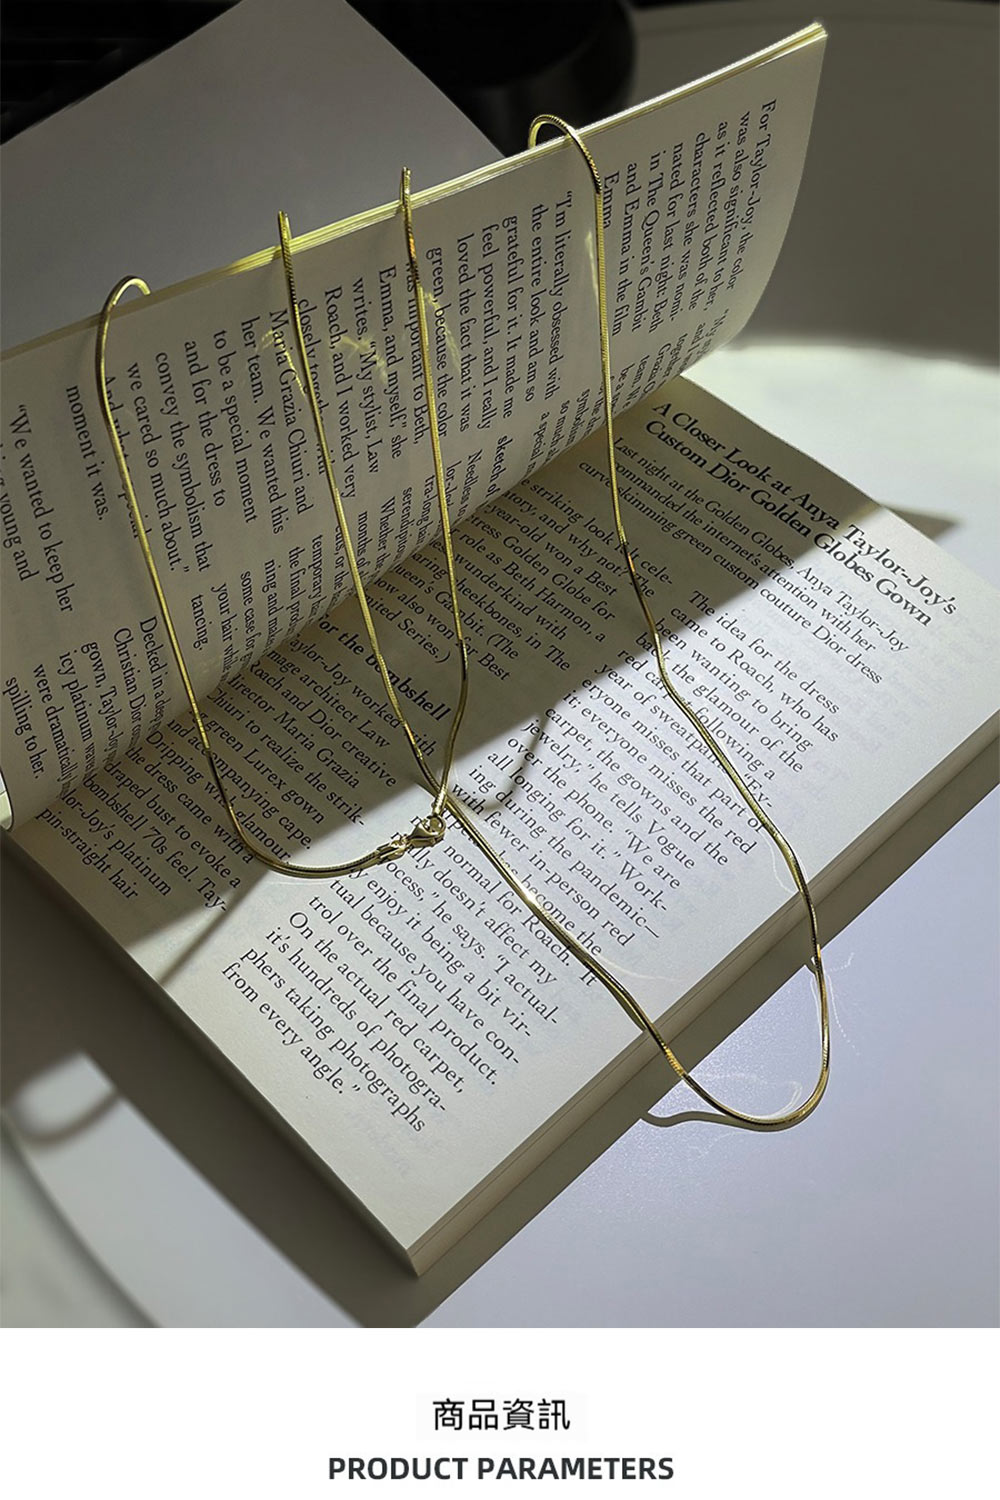 For Taylor-Joy, the color
was also significant to her,
as it reflected both of the
characters she was nomi-
nated for last night: Beth
in The Queen's Gambit
and Emma in the film
Emma.
"I'm literally obsessed with
the entire look and am so
grateful for it. It made me
feel powerful, and I really
loved the fact that it was
green, because the color
was important to Beth,
Emma, and myself," she
writes. "My stylist, Law
Roach, and I worked very
closely together with
Maria Grazia Chiuri and
her team. We wanted this
to be a special moment
and for the dress to
convey the symbolism that
we cared so much about."
moment it was.
"We wanted to keep her
young and
A Closer Look at Anya Taylor-Joy's
Custom Dior Golden Globes Gown
Last night at the Golden Globes, Anya Taylor-Joy
commanded the internet's attention with her
curve-skimming green custom couture Dior dress
striking look
story, and why not:
year-old won a Best
Actress Golden Globe for
role as Beth Harmon, a
wunderkind with
cheekbones, in The
Queen's Gambit. (The
now also won for Best
Limited Series.)
for the bombshell
Taylor-Joy worked with
image architect Law
Roach and Dior creative
director Maria Grazia
Chiuri to realize the strik-
green Lurex gown
and accompanying cape.
Dripping with glamour,
the dress came with a
draped bust to evoke a
bombshell 70s feel. Tay-
lor-Joy's platinum
pin-straight hair
Decked in a deep
Christian Dior
gown, Taylor-Joy
icy platinum
were dramatically
spilling to her.
The idea for the dress
came to Roach, who has
been wanting to bring
back the glamour of the
red carpet following a
year of sweatpants. "Ev-
eryone misses that part of
it; everyone misses the red
carpet, the gowns and the
jewelry," he tells Vogue
over the phone. "We are
all longing for it." Work-
ing during the pandemic—
with fewer in-person red
has become the
normal for Roach. "It
really doesn't affect my
process," he says. "I actual-
ly enjoy it being a bit vir-
tual because you have con-
trol over the final product.
On the actual red carpet,
it's hundreds of photogra-
phers taking photographs
from every angle."
商品資訊
PRODUCT PARAMETERS